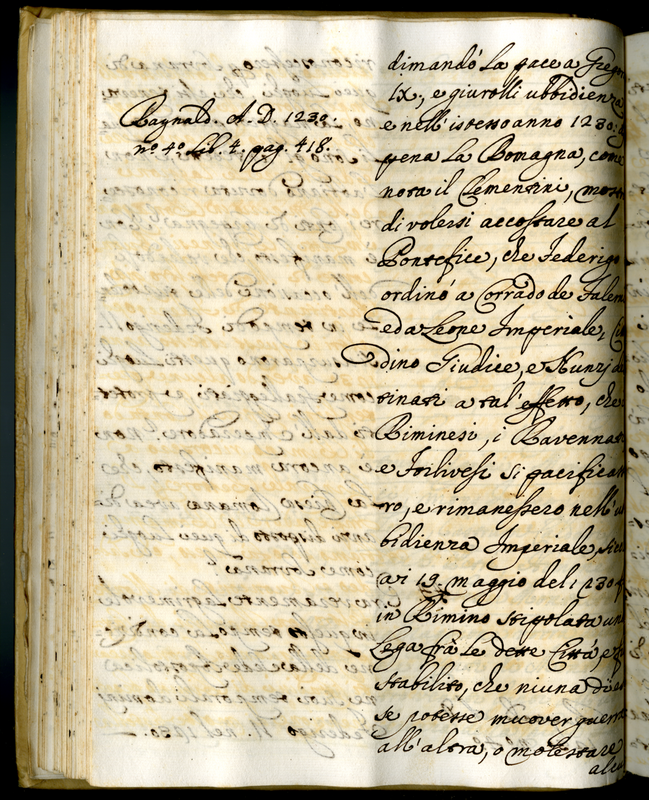 Raynald. A. D. 1230.
nº. 40. lib. 4. pag. 418.
dimandò la pace a Gregor
IX., e giurolli ubbidienza
e nell'istesso anno 1230.
pena La Romagna, come
nota il Clementini, mostr
di volersi accostare al
Pontefice, che Federigo
ordinò a Corrado de Falern
e da Leone Imperiale,
dino Giudice, e Nunzj de
tinati a tal' effetto, che
Riminesi, i Ravennat
e Forlivesi si pacificas
ro, e rimanessero nell'u
bidienza Imperiale,
ai 19. maggio del 1230
in Rimino stipolata un
Lega frà Le dette Città, e
stabilito, che niuna di es
se potesse muover guerra
all'altra, o molestare